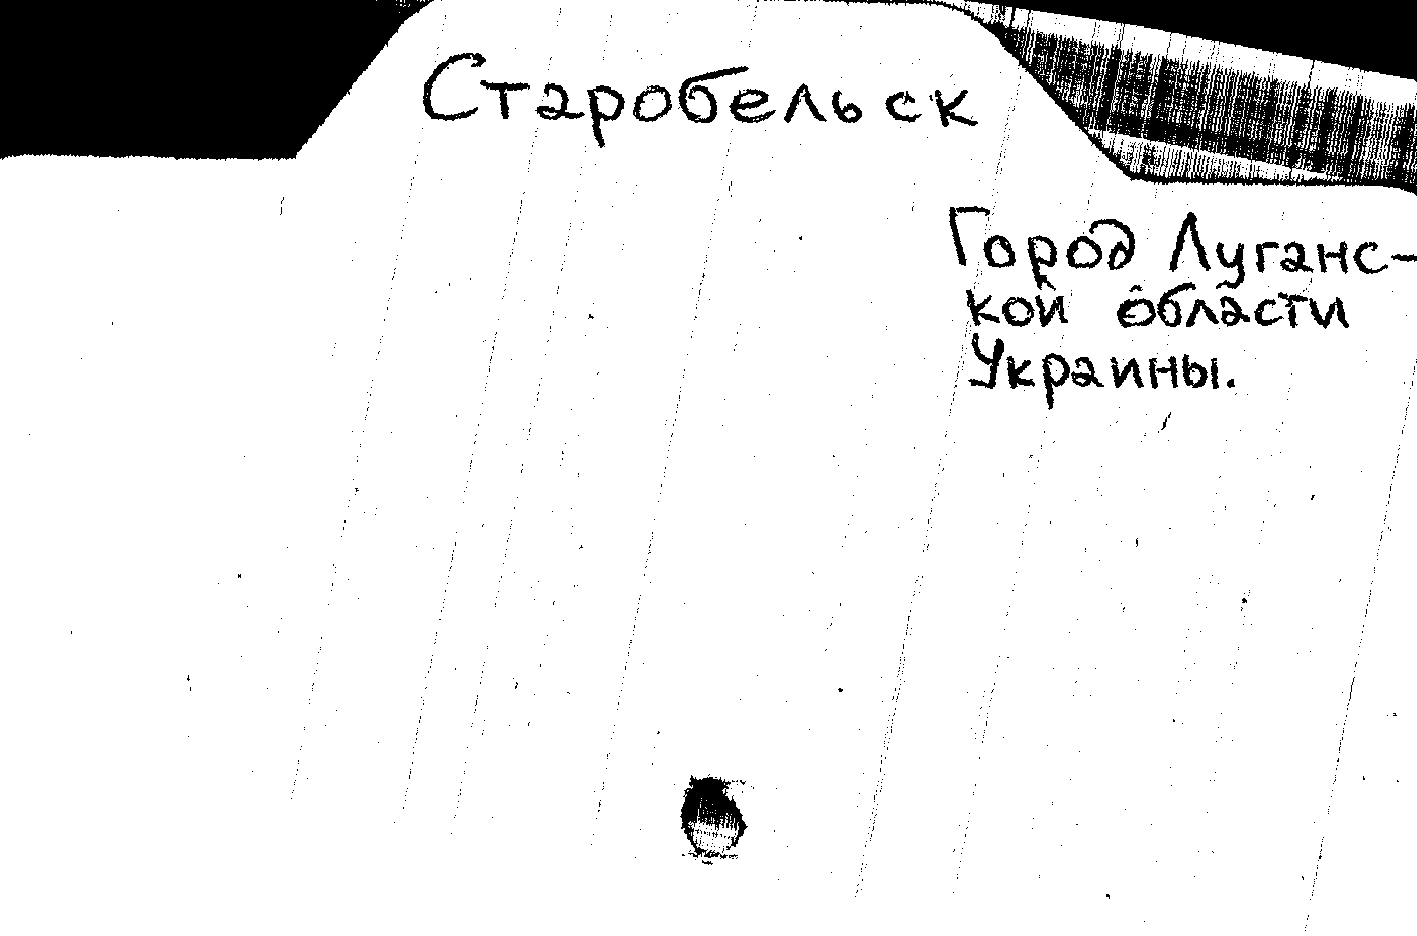 Старобельск
Город Луганс-
кой области
Украины.